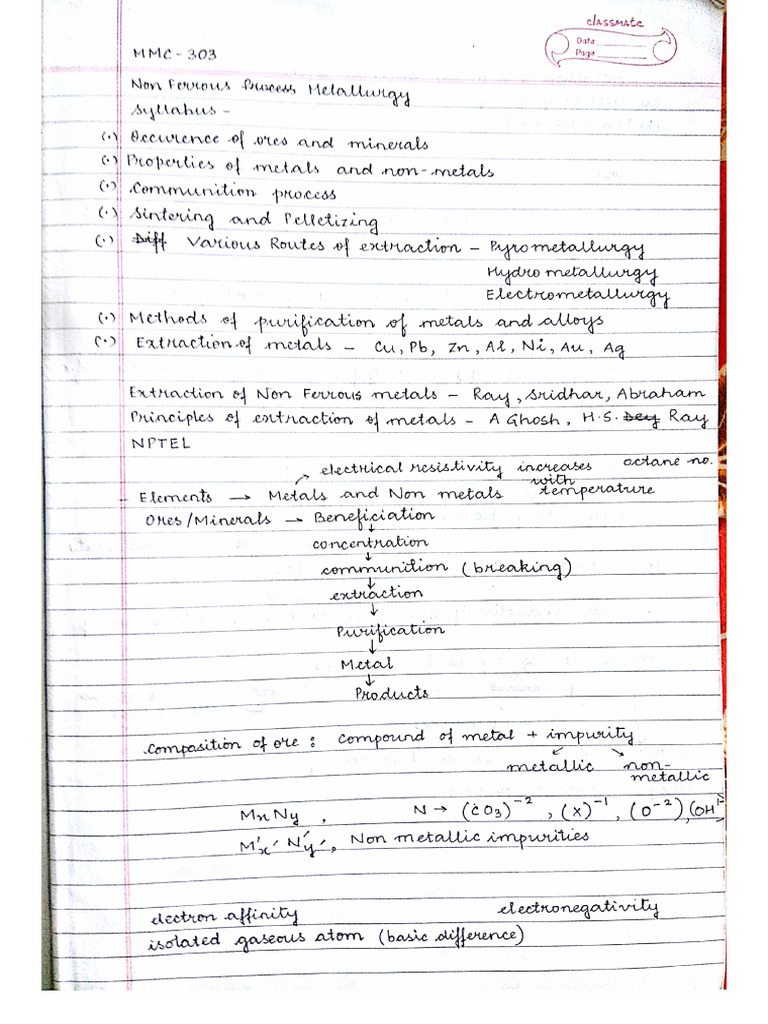 classmate
Date
Page
MMC-303
Non Ferrous Process Metallurgy
Syllabus -
(·) Occurence of ores and minerals
(·) Properties of metals and non-metals
(·) Communition process
(·) Sintering and Pelletizing
(·) Diff Various Routes of extraction - Pyrometallurgy
Hydrometallurgy
Electrometallurgy
(·) Methods of purification of metals and alloys
(·) Extraction of metals - Cu, Pb, Zn, Al, Ni, Au, Ag
Extraction of Non Ferrous metals - Ray, Sridhar, Abraham
Principles of extraction of metals - A Ghosh, H.S. Dey Ray
NPTEL
electrical resistivity increases octane no.
with
Elements → Metals and Non metals temperature
Ores/Minerals → Beneficiation
↓
concentration
↓
communition (breaking)
↓
extraction
↓
Purification
↓
Metal
↓
Products
Composition of ore : Compound of metal + impurity
metallic non-
metallic
MxNy, N → (CO3)⁻², (X)⁻¹, (O⁻²), (OH⁻
M'x' N'y', Non metallic impurities
electron affinity electronegativity
isolated gaseous atom (basic difference)